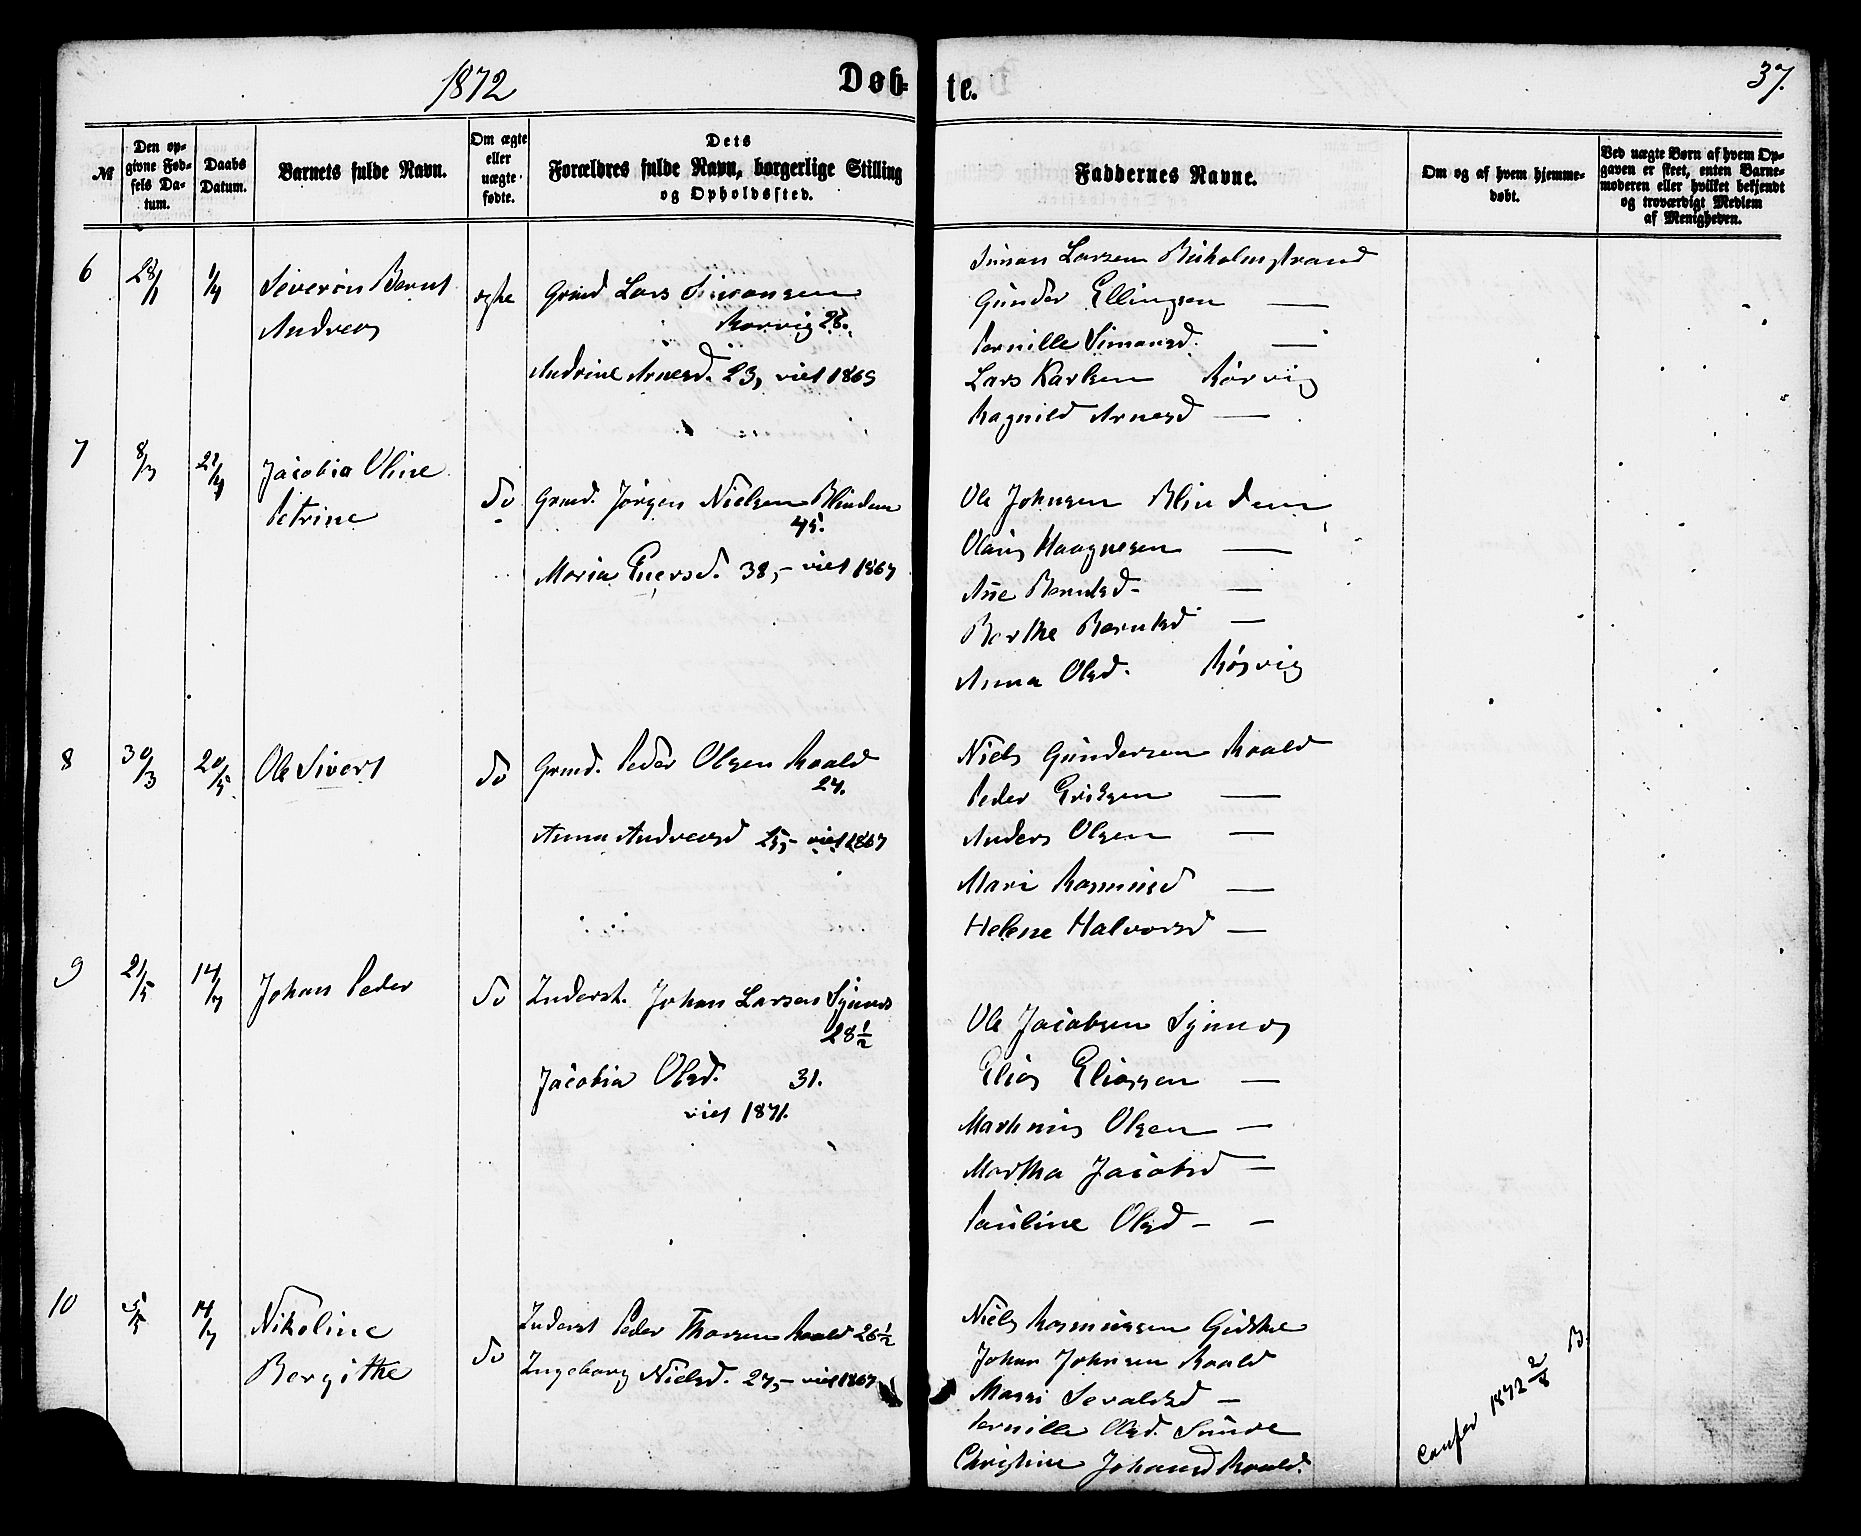 1872
Døb-
te.
37.
№
Den op-
givne Fød-
sels Da-
tum.
Daabs
Datum.
Barnets fulde Navn.
Om ægte
eller
uægte
fødte.
Dets
Forældres fulde Navn, borgerlige Stilling
og Opholdssted.
Faddernes Navne.
Om og af hvem hjemme-
døbt.
Ved uægte Børn af hvem Op-
gaven er skeet, enten Barne-
moderen eller hvilket bekjendt
og troværdigt Medlem
af Menigheden.
6
28/1
1/4
Severin Bernt
Andreas
ægte
Grmd Lars Simonsen
Rørvig 28.
Andrine Arnesd. 23, viet 1869
Simon Larsen
Gunder Ellingsen —
Pernille Simonsd. —
Lars Karlsen Rørvig
Ragnild Arnesd —
7
8/3
21/4
Jacobia Oline
Petrine
do
Grmd. Jørgen Nielsen Blindem
45.
Maria Eversd. 38,- viet 1867
Ole Johnsen Blindem
Olaus Haagnesen —
Ane Berntsd- —
Berthe Berntsd —
Anna Olsd. Røsvig
8
30/3
20/5
Ole Sivert
do
Grmd. Peder Olsen Roald
27.
Anna Andreasd 25,- viet 1867
Niels Gundersen Roald
Peder Eriksen —
Anders Olsen —
Mari Rasmusd —
Helene Halvorsd —
9
21/5
14/7
Johan Peder
do
Inderst. Johan Larsen Synnes
28 1/2
Jacobia Olsd. 31.
viet 1871.
Ole Jacobsen Synnes
Elias Eliassen —
Martinus Olsen —
Martha Jacobsd —
Pauline Olsd — —
10
5/5
14/7
Nikoline
Bergithe
do
Inderst Peder Thorsen Roald 26 1/2
Ingeborg Nielsd. 27,- viet 1867
Niels Rasmussen Gidske
Johan Johnsen Roald
Massi Sevaldsd —
Pernille Olsd. Sunde
Christine Johansd Roald.
Confer 1872 2/8 B.